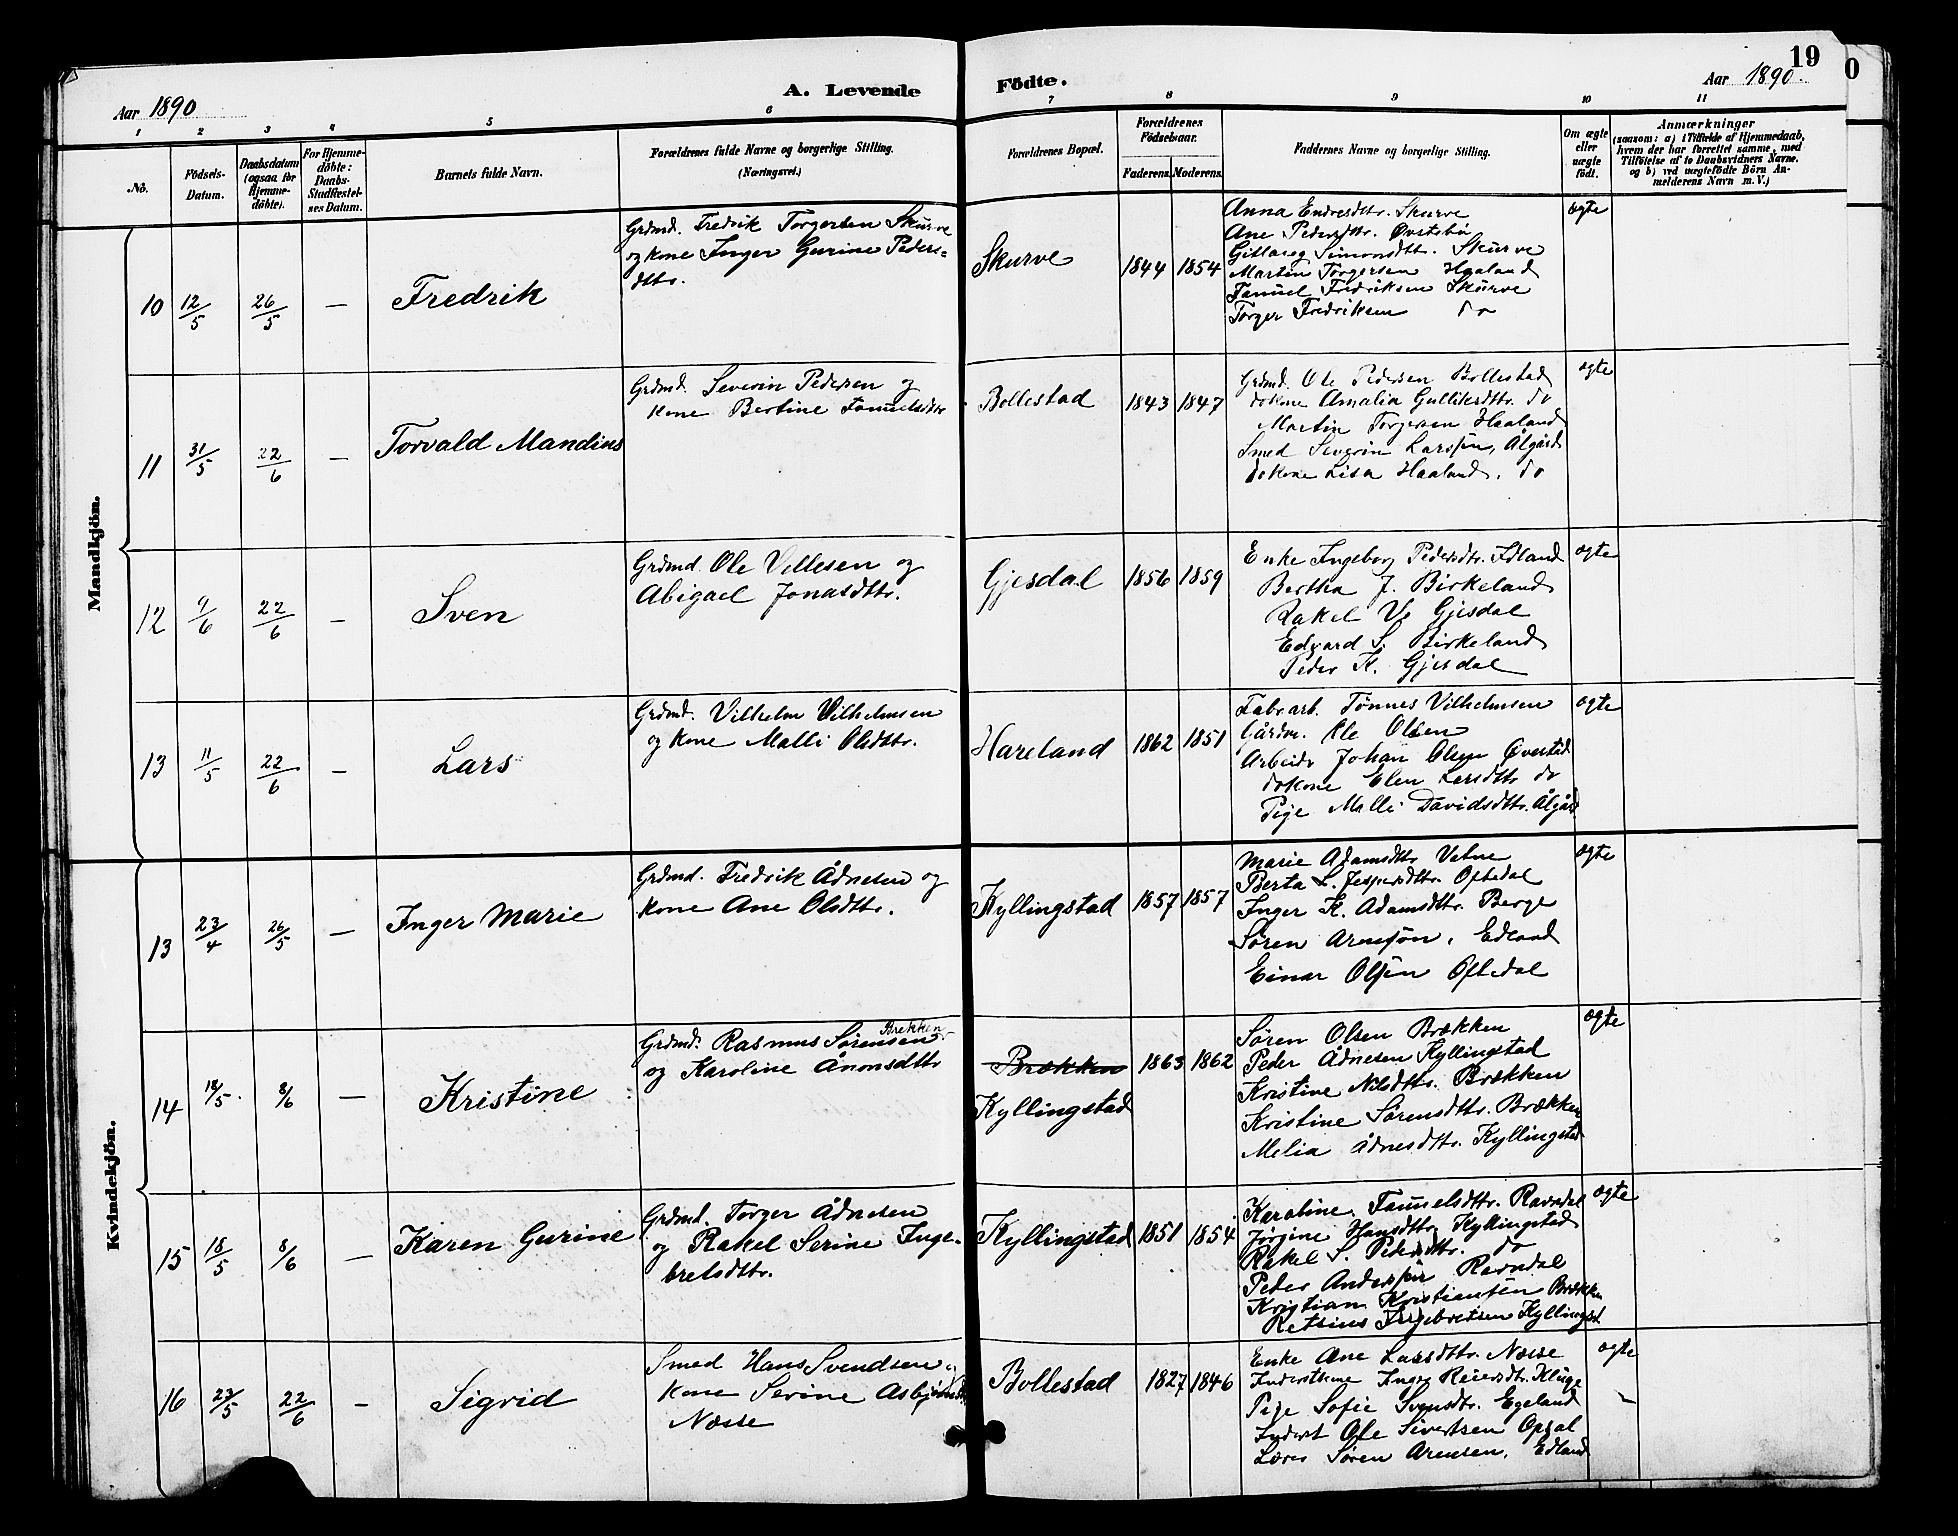 19
0
A. Levende Födte.
Aar 1890
Aar 1890.
1 2 3 4 5 6 7 8 9 10 11
No.
Födsels-
Datum.
Daabsdatum
(ogsaa for
Hjemme-
döbte).
For Hjemme-
döbte:
Daabs-
Stadfæstel-
ses Datum.
Barnets fulde Navn.
Forældrenes fulde Navne og borgerlige Stilling.
(Næringsvei.)
Forældrenes Bopæl.
Forældrenes
Födselsaar.
Faderens. Moderens.
Faddernes Navne og borgerlige Stilling.
Om ægte
eller
uægte
födt.
Anmærkninger
(saasom: a) i Tilfælde af Hjemmedaab,
hvem der har forrettet samme, med
Tilföielse af to Daabsvidners Navne.
og b) ved uægtefödte Börn An-
melderens Navn m. V.)
Mandkjön.
10 12/5 26/5 — Fredrik
Grdmd. Fredrik Torgersen Skurve
og kone Inger Gurine Peders-
dtr.
Skurve 1844 1854
Anna Endresdtr. Skurve
Ane Pedersdtr. Øvstebø
Gitlaug Simonsdtr. Skurve
Martin Torgersen Haaland
Tønnel Fredriksen Skurve
Torger Fredriksen do
ægte
11 31/5 22/6 — Torvald Mandius
Grdmd. Severin Pedersen og
kone Bertine
Bollestad 1843 1847
Grdmd. Ole Pedersen Bollestad
do kone Amalia Gulliksdtr. do
Martin Torgersen Haaland
Smed Severin Larssen, Ålgård
do kone Lisa Haaland. do
ægte
12 9/6 22/6 — Sven
Grdmd. Ole Villesen og
Abigael Jonasdttr.
Gjesdal 1856 1859
Enke Ingeborg Pedersdtr. Edland
Bertha J. Birkeland
Rakel V. Gjesdal
Edvard S. Birkeland
Peder K. Gjesdal
ægte
13 11/5 22/6 — Lars
Grdmd. Vilhelm Vilhelmsen
og kone Malli Olsdttr.
Hareland 1862 1851
Fabrarb. Tønnes Vilhelmsen
Gårdm. Ole Olsen
Arbeider Johan Olsen
do kone Elen Larsdttr do
Pige Malli Davidsdttr. Ålgård
ægte
Kvindekjön.
13 23/4 26/5 — Inger Marie
Grdmd. Fredrik Ådnesen og
kone Ane Olsdttr.
Kyllingstad 1857 1857
Marie Adamsdttr Vatne
Berta L. Jespersdttr. Oftedal
Inger K. Adamsdttr. Berge
Søren Arnessøn, Edland
Einar Olsen Oftedal
ægte
14 18/5. 8/6 — Kristine
Brekken
Grdmd. Rasmus Sørensen
og Karoline Ånonsdttr
Brækken
Kyllingstad 1863 1862
Søren Olsen Brækken
Peder Ådnesen Kyllingstad
Kristine Nilsdttr. Brækken
Kristine Sørensdttr. Brækken
Melia Ådnesdttr. Kyllingstad
ægte
15 18/5 8/6 — Karen Gurine
Grdmd. Torger Ådnesen
og Rakel Serine Inge-
bretsdttr.
Kyllingstad 1851 1854
Karoline Ravndal
Jørgine Hansdttr. Kyllingstad
Rakel S. Pedersdttr. do
Peder Anderssen Ravndal
Kristian Kristiansen Brækken
Ingebretsen Kyllingst.
ægte
16 23/5 22/6 — Sigrid
Smed Hans Svendsen
kone Serine
Næsse
Bollestad 1827 1846
Enke Ane Larsdttr. Næsse
Inderstkone Inger Reiersdtr. Kluge
Pige Sofie Svensdtr. Egeland
Inderst Ole Sivertsen Opsal
Lærer Søren Arnesen, Edland
ægte